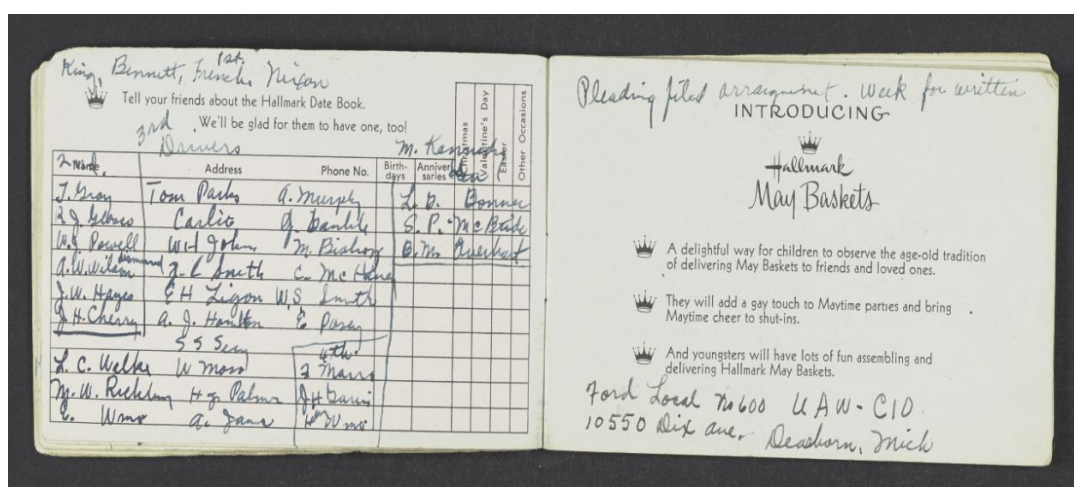 1st.
King, Bennett, French, Nixon
Tell your friends about the Hallmark Date Book.
We'll be glad for them to have one, too!
3rd
Drivers
M. Kennedy
Christmas
Valentine's Day
Easter
Other Occasions
2nd
Name Address Phone No. Birth-days Anniver-saries
T. Gray Tom Parks A. Murphy L. D. Bonner
R. J. Glasco Carlie G. Gamble S. P. McBride
W. J. Powell W H Johns M. Bishop B. M. Overheart
A. W. Wilson J. L Smith C. McHaney
J. W. Hayes E H Ligon W. S Smith
J. H. Cherry A. J. Houston E Posey
S S Seay 4th
L. C. Walker W Moss
M. W. Rickling H J Palmer J H Garris
E. Wms A. James H Wms
Pleading filed arraignment. Week for written
INTRODUCING
Hallmark
May Baskets
A delightful way for children to observe the age-old tradition
of delivering May Baskets to friends and loved ones.
They will add a gay touch to Maytime parties and bring
Maytime cheer to shut-ins.
And youngsters will have lots of fun assembling and
delivering Hallmark May Baskets.
Ford Local No 600 UAW-CIO
10550 Dix ave, Dearborn, Mich